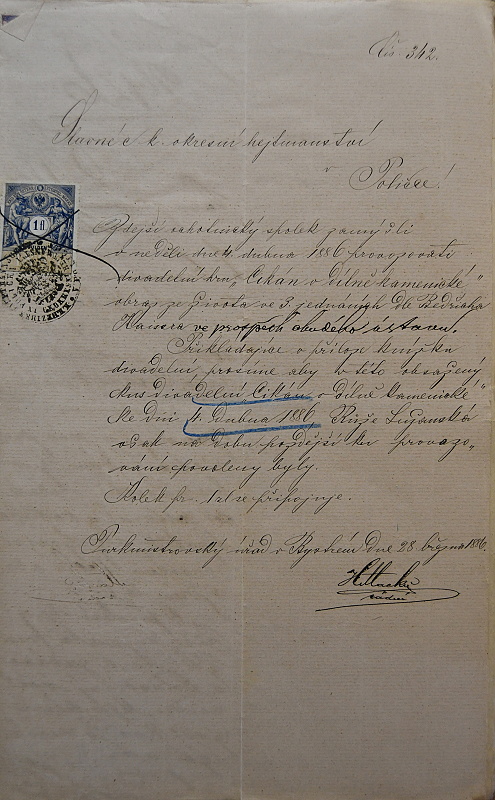 Čís. 342.
Slavné c. k. okresní hejtmanství
v
Poličce!
1 fl
Zdejší ochotnický spolek zamýšlí
v neděli dne 4. dubna 1886 provozovati
divadelní hru „Cikán v dílně kamenické"
obraz ze života ve 3. jednáních dle Bedřicha
Kaisra ve prospěch chudého ústavu.
Přikládajíce v příloze knížku
divadelní, prosíme aby v této obsažený
kus divadelní Cikán v dílně kamenické"
ke dni 4. dubna 1886
však na dobu pozdější ku provozo„
vání povoleny byly.
Kolek pr. 1 zl se připojuje.
Purkmistrovský úřad v Bystrém dne 28. března 1886.
radní